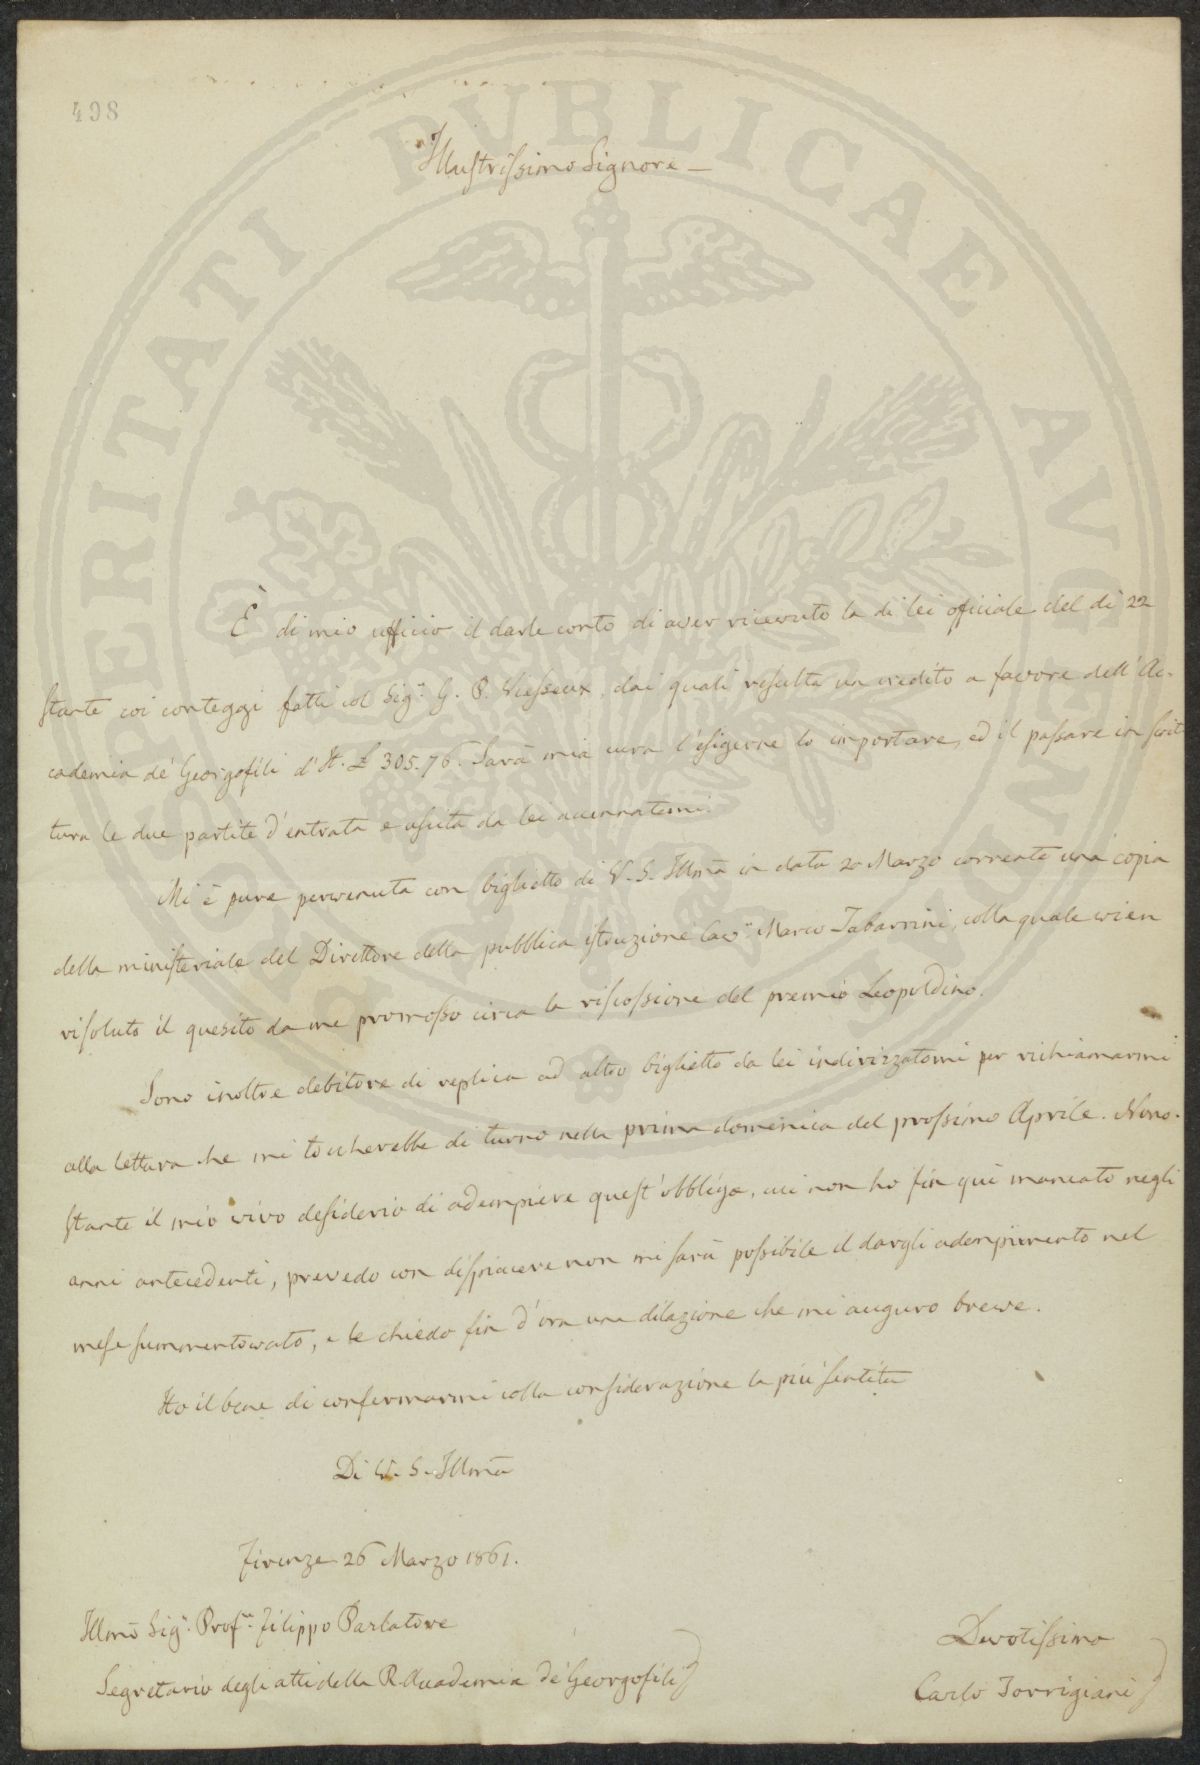 498
Illustrissimo Signore —
È di mio ufficio il darle conto di aver ricevuto la di lei officiale del dì 22
stante coi conteggi fatti col Sigr. G. P. Viesseux, dai quali resulta un credito a favore dell'Ac-
cademia de' Georgofili d'It. £ 305.76. Sarà mia cura l'esigerne lo importare, ed il passare in scrit
tura le due partite d'entrata e uscita da lei accennatemi.
Mi è pure pervenuta con biglietto di V. S. Illma in data 20 Marzo corrente una copia
della ministeriale del Direttore della pubblica istruzione Cavr. Marco Tabarrini, colla quale vien
risoluto il quesito da me promosso circa la riscossione del premio Leopoldino.
Sono inoltre debitore di replica ad altro biglietto da lei indirizzatomi per richiamarmi
alla lettura che mi toccherebbe di turno nella prima domenica del prossimo Aprile. Nono-
stante il mio vivo desiderio di adempiere quest'obbligo, cui non ho fin qui mancato negli
anni antecedenti, prevedo con dispiacere non mi sarà possibile il dargli adempimento nel
mese summentovato, e le chiedo fin d'ora una dilazione che mi auguro breve.
Ho il bene di confermarmi colla considerazione la più sentita
Di V. S. Illma
Firenze 26 Marzo 1861.
Illmo Sigr. Profre. Filippo Parlatore
Segretario degli atti della R. Accademia de' Georgofili
Devotissimo
Carlo Torrigiani
PROSPERITATI PUBLICAE AUGENDAE